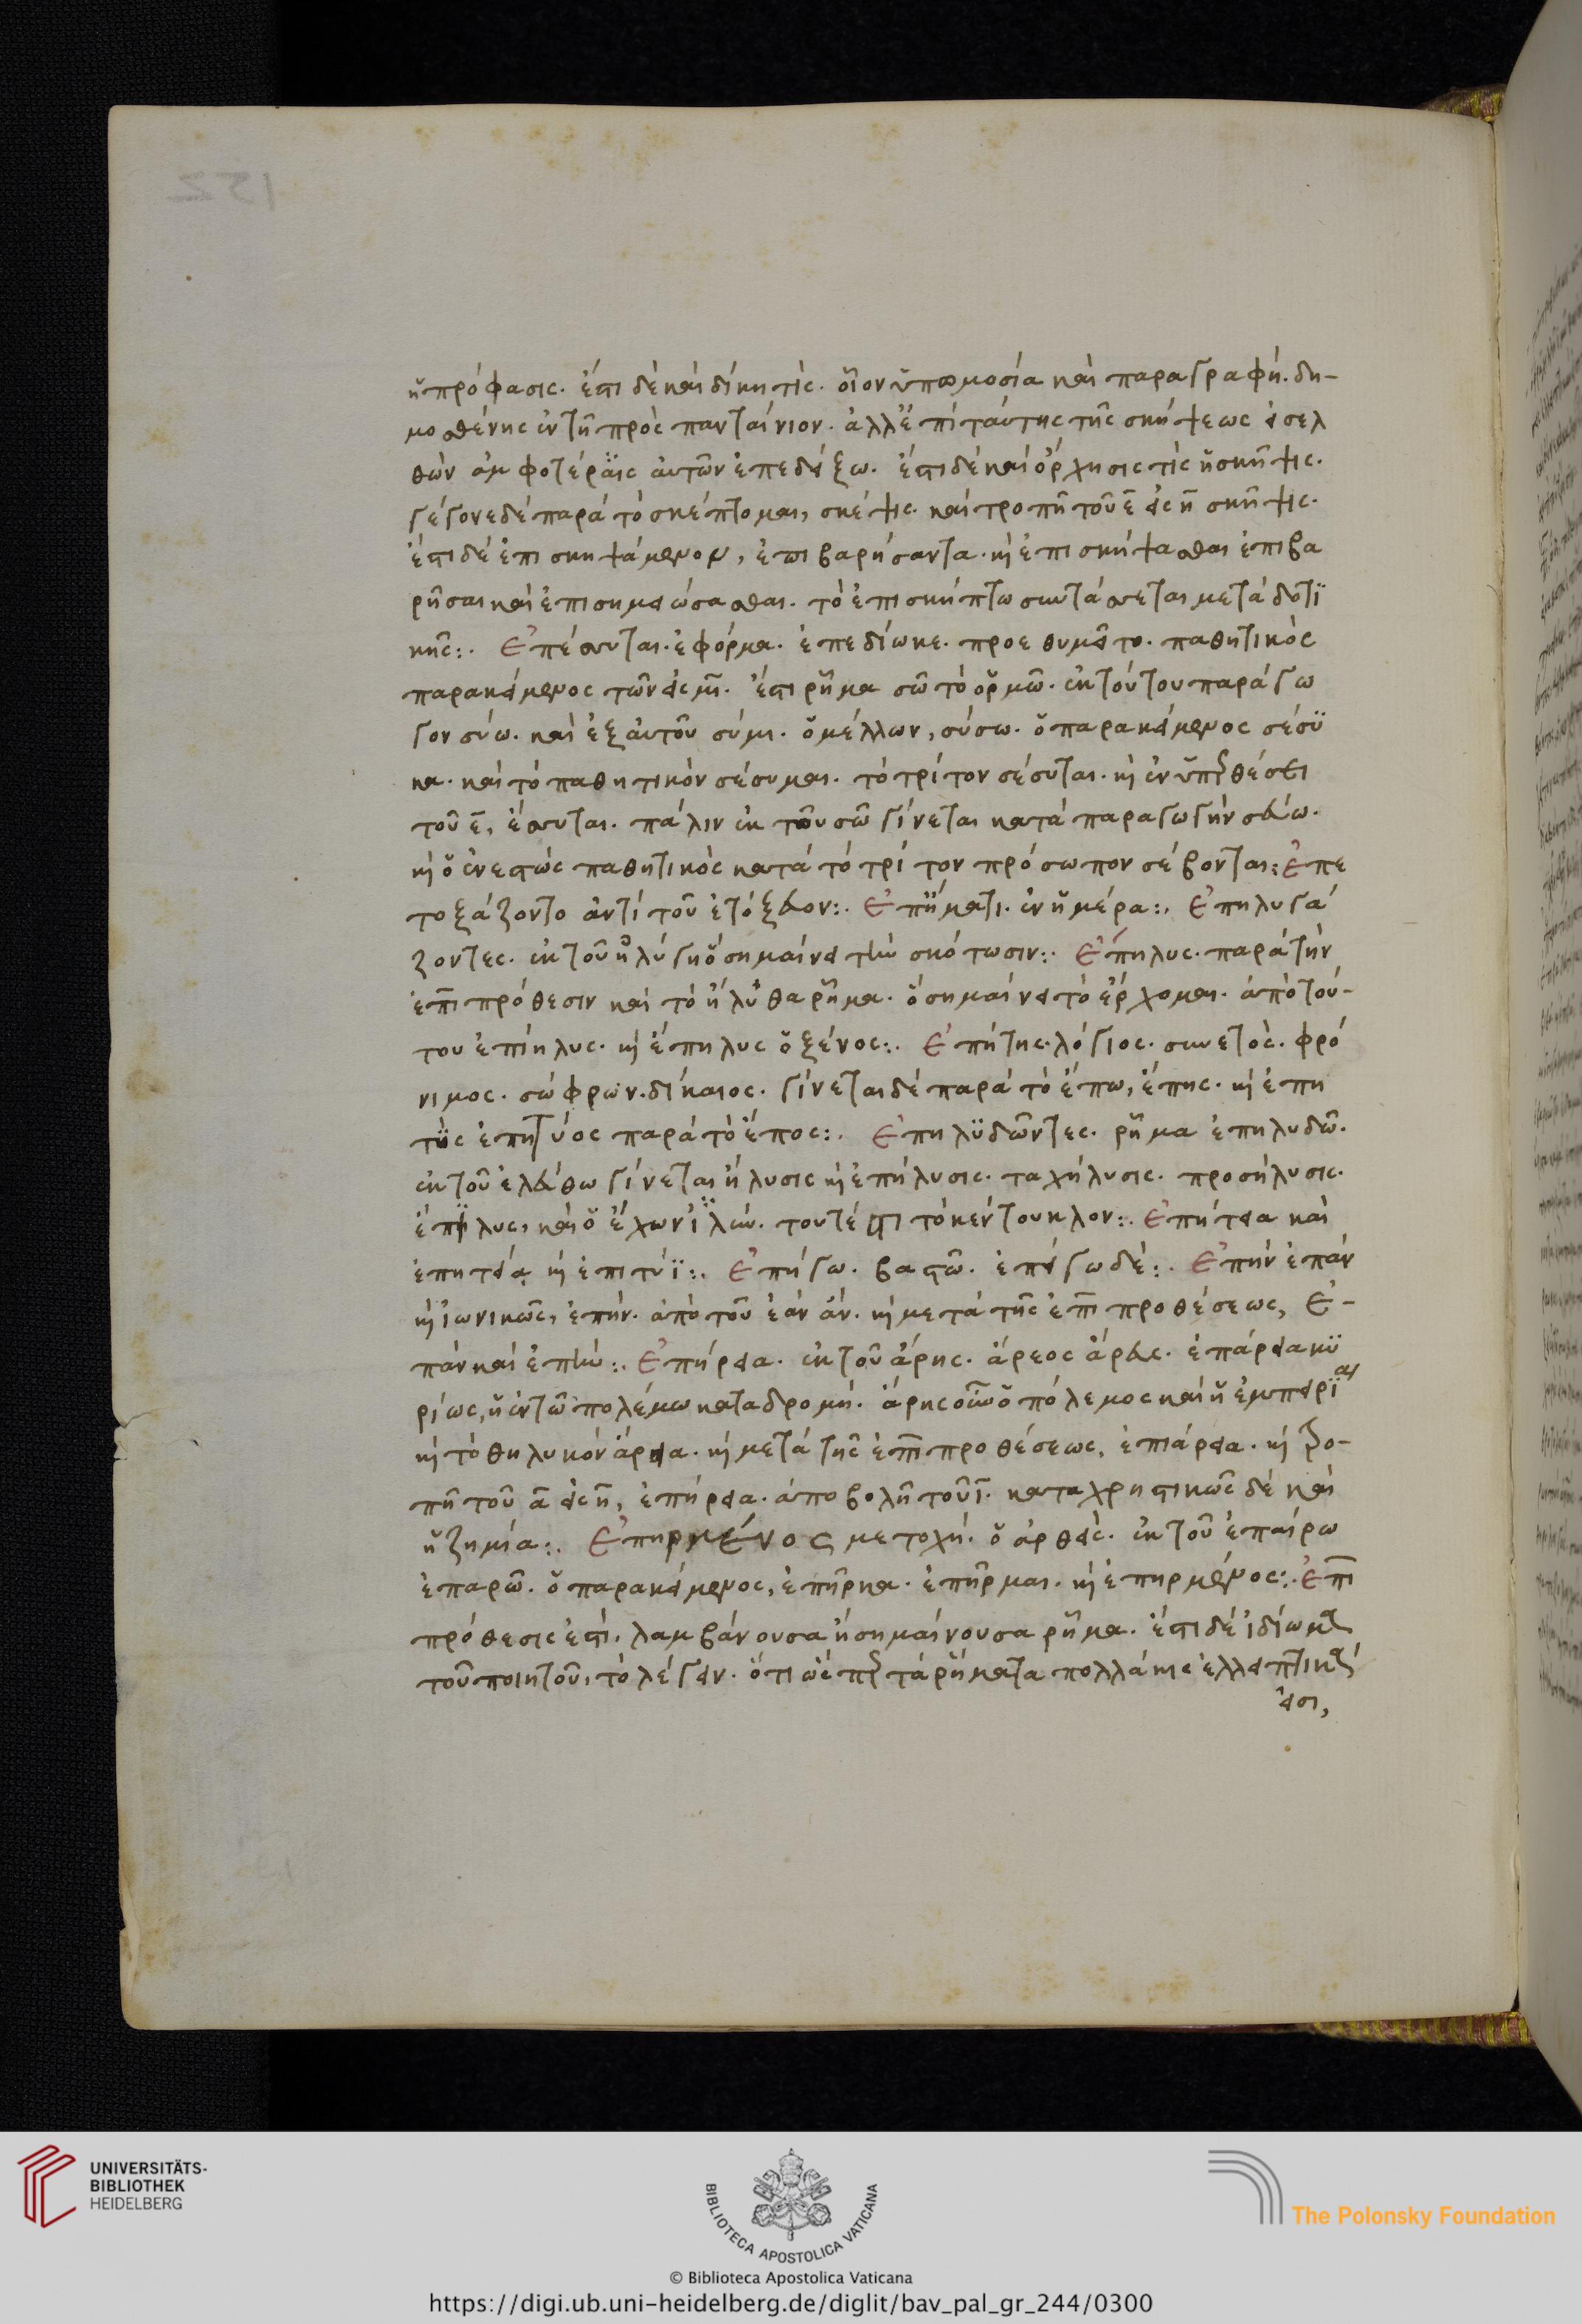 ἡ πρόφασις. ἔστι δὲ καὶ δίκη τίς. οἷον ὑπωμοσία καὶ παραγραφή. δη-
μοσθένης ἐν τῇ πρὸς πανταίνιον. ἀλλ' ἐπὶ ταύτης τῆς σκήψεως εἰσελ
θὼν ἀμφοτέραις αὐτῶν ἐπεδείξω. ἔστι δὲ καὶ ὄρχησις τίς ἡ σκῆψις.
γέγονε δὲ παρὰ τὸ σκέπτομαι, σκέψις. καὶ τροπῇ τοῦ ε̄ εἰς η̄ σκῆψις.
ἔστι δὲ ἐπισκηψάμενον, ἐπιβαρήσαντα. κ ἐπισκήψασθαι ἐπιβα
ρῆσαι καὶ ἐπισημειώσασθαι. τὸ ἐπισκήπτω συντάσσεται μετὰ δοτϊ
κῆς:. Ἐπέσσυται. ἐφόρμα. ἐπεδίωκε. προεθυμεῖτο. παθητικὸς
παρακείμενος τῶν εἰς μῑ. ἔστι ῥῆμα σῶ τὸ ὁρμῶ. ἐκ τούτου παράγω
γον σύω. καὶ ἐξ αὐτοῦ σύμι. ὁ μέλλων, σύσω. ὁ παρακείμενος σέσϋ
κα. καὶ τὸ παθητικὸν σέσυμαι. τὸ τρίτον σέσυται. κ ἐν ὑπερθέσει
τοῦ ε̄, ἔσσυται. πάλιν ἐκ τοῦ σῶ γίνεται κατὰ παραγωγὴν σεύω.
κ ὁ ἐνεστὼς παθητικὸς κατὰ τὸ τρίτον πρόσωπον σέβονται:. Ἐπε
τοξάζοντο ἀντὶ τοῦ ἐτόξευον:. Ἐπήματι. ἐν ἡμέρα:. Ἐπηλυγά
ζοντες. ἐκ τοῦ ἠλύγη ὃ σημαίνει τὴν σκότωσιν:. Ἔπηλυς. παρὰ τὴν
ἐπῑ πρόθεσιν καὶ τὸ ἤλυθα ῥῆμα. ὃ σημαίνει τὸ ἔρχομαι. ἀπὸ τού-
του ἐπίηλυς. κ ἔπηλυς ὁ ξένος:. Ἐπήτης. λόγιος. συνετὸς. φρό
νιμος. σώφρων. δίκαιος. γίνεται δὲ παρὰ τὸ ἔπω, ἔπης. κ ἐπη
τὺς ἐπητύος παρὰ τὸ ἔπος:. Ἐπηλϋδῶντες. ῥῆμα ἐπηλυδῶ.
ἐκ τοῦ ἐλεύθω γίνεται ἤλυσις κ ἐπήλυσις. ταχήλυσις. προσήλυσις.
ἔπηλυς, καὶ ὁ ἔχων ἰλὺν. τουτέστι τὸ κέντουκλον:. Ἐπήτεια καὶ
ἐπητεία κ ἐπιτύϊ:. Ἐπήγω. βαστῶ. ἐπείγω δέ:. Ἐπὴν ἐπὰν
κ ἰωνικῶς, ἐπὴν. ἀπὸ τοῦ ἐὰν ἂν. κ μετὰ τῆς ἐπῑ προθέσεως, Ἐ-
πὰν καὶ ἐπὴν:. Ἐπήρεια. ἐκ τοῦ ἄρης. ἄρεος ἄρευς. ἐπάρεια κϋ
ρίως, ἡ ἐν τῶ πολέμω καταδρομή. ἄρης οὖν ὁ πόλεμος καὶ ἡ ἐμπειρϊαι
κ τὸ θηλυκὸν ἄρεια. κ μετὰ τῆς ἐπῑ προθέσεως, ἐπιάρεια. κ τρο-
πῇ τοῦ ᾱ εἰς η̄, ἐπήρεια. ἀποβολῇ τοῦ ῑ. καταχρηστικῶς δὲ καὶ
ἡ ζημία:. Ἐπηρμένος μετοχή. ὁ ἀρθεὶς. ἐκ τοῦ ἐπαίρω
ἐπαρῶ. ὁ παρακείμενος, ἐπῆρκα. ἐπῆρμαι. κ ἐπηρμένος:. Ἐπῑ
πρόθεσις ἐστὶ. λαμβάνουσα ἢ σημαίνουσα ῥῆμα. ἔστι δὲ ἰδίωμα
τοῦ ποιητοῦ, τὸ λέγειν. ὅτι ὡς ἐπὶ τὰ ῥήματα πολλάκις ἐλλειπτικὰ
εἰσι,
UNIVERSITÄTS-
BIBLIOTHEK
HEIDELBERG
BIBLIOTECA APOSTOLICA VATICANA
The Polonsky Foundation
© Biblioteca Apostolica Vaticana
https://digi.ub.uni-heidelberg.de/diglit/bav_pal_gr_244/0300